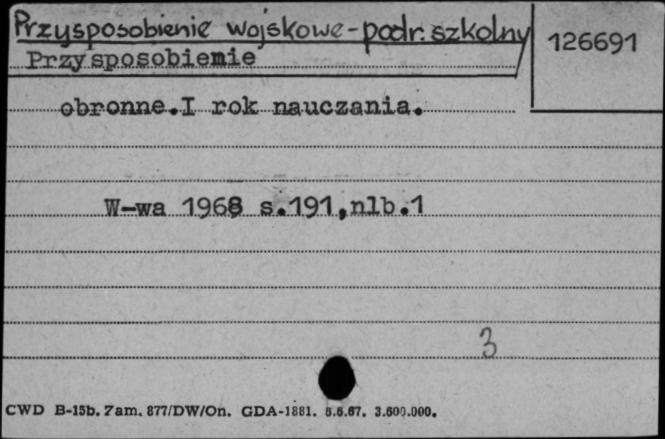 Przysposobienie wojskowe - podr. szkolny
126691
Przysposobienie
obronne. I rok nauczania.
W-wa 1968 s.191,nlb.1
3
CWD B-15b. Zam. 877/DW/On. GDA-1881. 5.6.67. 3.600.000.